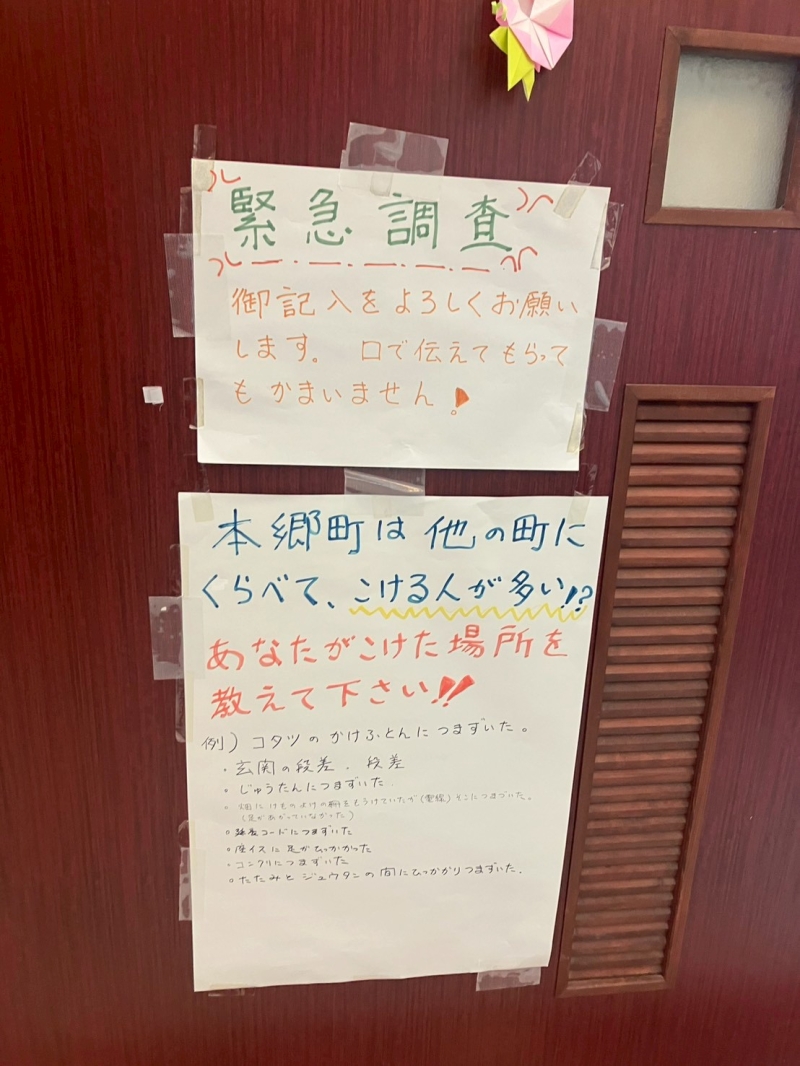 緊急調査
御記入をよろしくお願い
します。 口で伝えてもらって
もかまいません!
本郷町は他の町に
くらべて、こける人が多い!?
あなたがこけた場所を
教えて下さい!!
例) コタツのかけふとんにつまずいた。
・玄関の段差、段差
・じゅうたんにつまずいた
・畑にけものよけの柵をもうけていたが(電線)そこにつまづいた。
(足があがっていなかった)
・延長コードにつまずいた
・座イスに足がひっかかった
・コンクリにつまずいた
・たたみとジュウタンの間にひっかかりつまずいた.